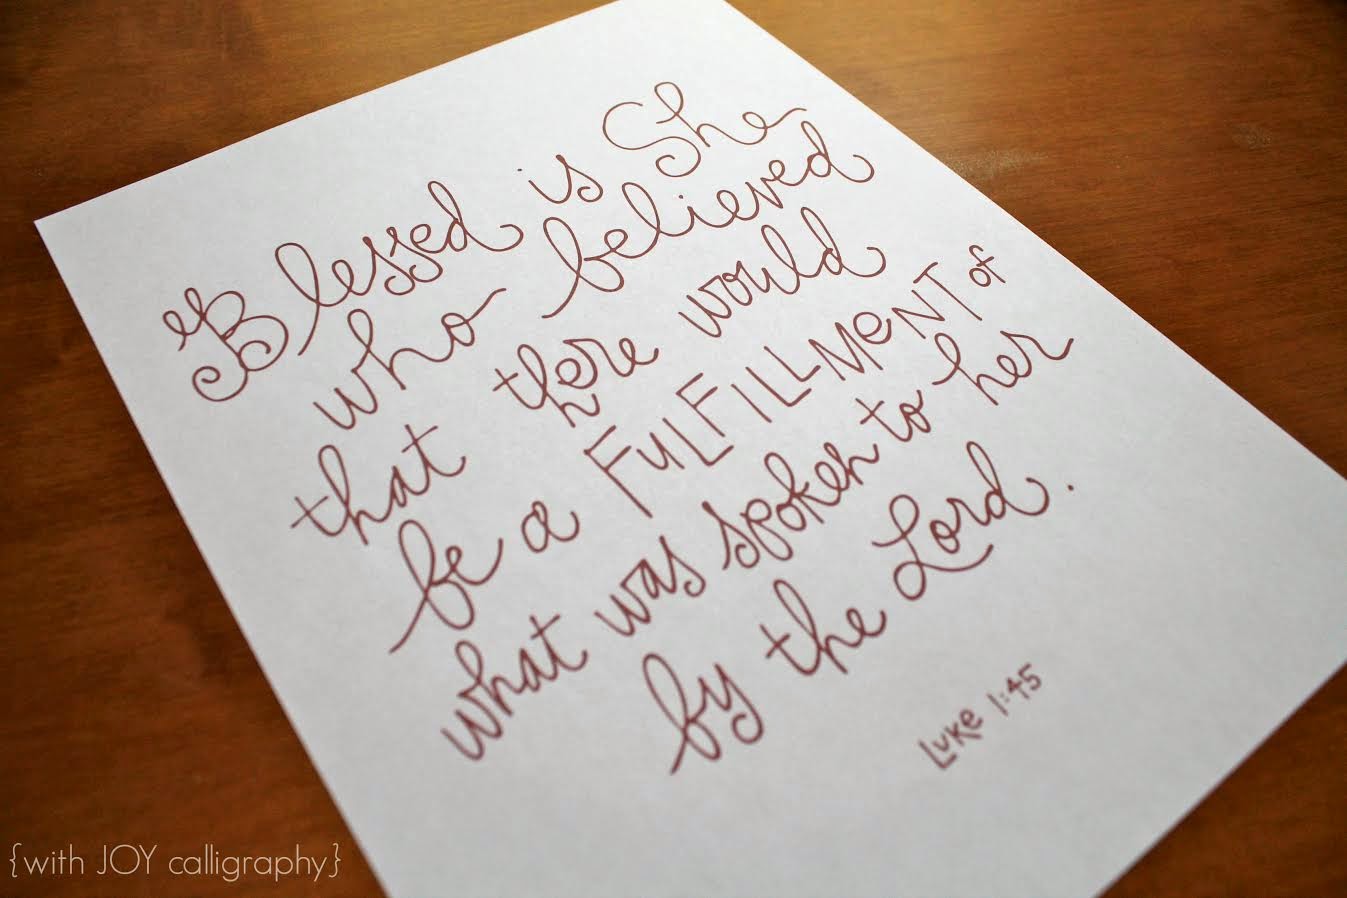 Blessed is She
who believed
that there would
be a FULFILLMENT of
what was spoken to her
by the Lord.
Luke 1:45
{with JOY calligraphy}